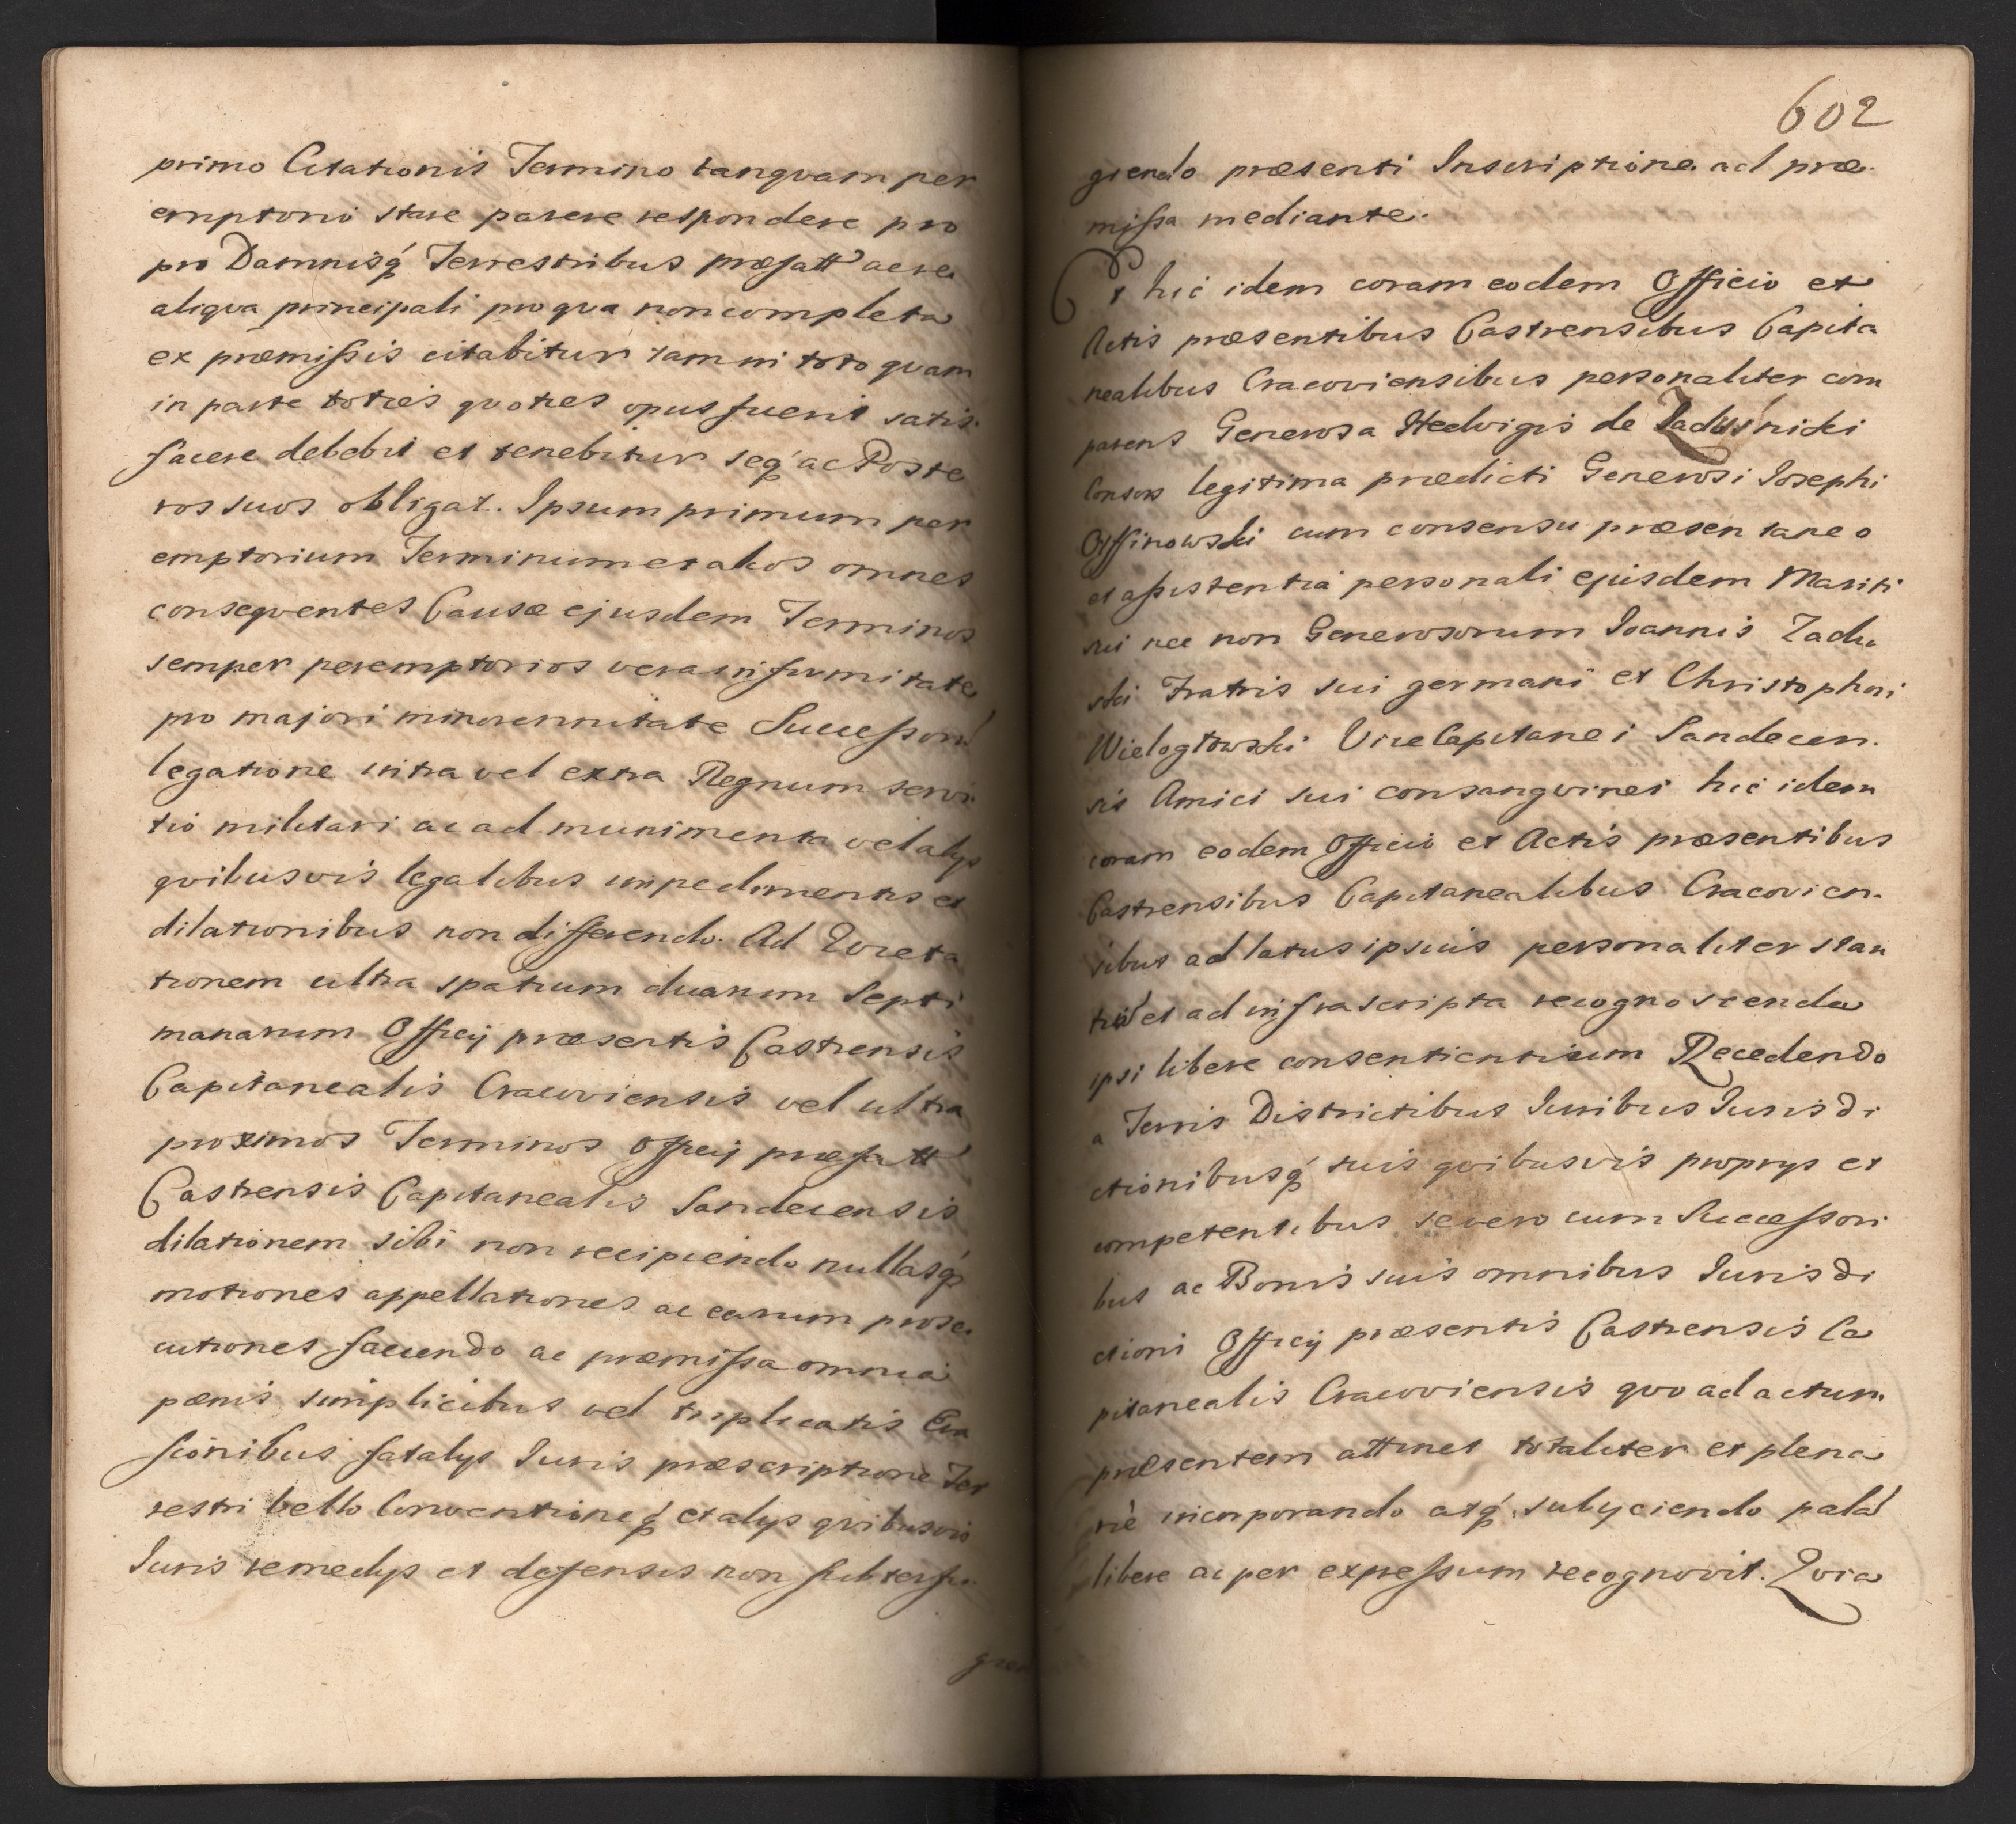 primo Citationis Termino tanqvam per
emptorio stare parere respondere pro
pro Damnisq́ Terrestribus præfatt' ac re
aliqva principali pro qva non completa
ex præmissis citabitur tam in toto qvam
in parte toties qvoties opus fuerit satis
facere debebit et tenebitur seq́ ac Poste
ros suos obligat. Ipsum primum per
emptorium Terminum et alios omnes
conseqventes Causæ ejusdem Terminos
semper peremptorios vera infirmitate
pro majori minorennitate Successorū
legatione intra vel extra Regnum servi
tio militari ac ad munimenta vel alys
qvibusvis legalibus impedimentis et
dilationibus non differendo. Ad Qvieta
tionem ultra spatium duarum Septi
manarum Officij præsentis Castrensis
Capitanealis Cracoviensis vel ultra
proximos Terminos Officij præfatt'
Castrensis Capitanealis Sandecensis
dilationem sibi non recipiendo nullasq́
motiones appellationes ac earum prose
cutiones faciendo ac præmissa omnia
pœnis simplicibus vel triplicatis Eva
sionibus fatalys Juris præscriptione Ter
restri bello Conventioneq́ et alys qvibusvis
Juris remedys et defensis non subterfu
gien
602
giendo præsenti Inscriptione ad præ
missa mediante.
Et hic idem coram eodem Officio et
Actis præsentibus Castrensibus Capita
nealibus Cracoviensibus personaliter com
parens Generosa Hedvigis de
Consors legitima prædicti Generosi Josephi
cum consensu præsentaneo
et assistentia personali ejusdem Mariti
sui nec non Generosorum Joannis Zadu
ski Fratris sui germani et Christophori
Wielogłowski ViceCapitanei Sandecen
sis Amici sui consangvinei hic idem
coram eodem Officio et Actis præsentibus
Castrensibus Capitanealibus Cracovien
sibus ad latus ipsius personaliter stan
tiū et ad infrascripta recognoscenda
ipsi libere consentientium Recedendo
a Terris Districtibus Juribus Jurisdi
ctionibusq́ suis qvibusvis proprys et
competentibus se vero cum Successori
bus ac Bonis suis omnibus Jurisdi
ctioni Officij præsentis Castrensis Ca
pitanealis Cracoviensis qvo ad actum
præsentem attinet totaliter et plena
riè incorporando atq́ subyciendo palā
libere ac per expressum recognovit. Qvia